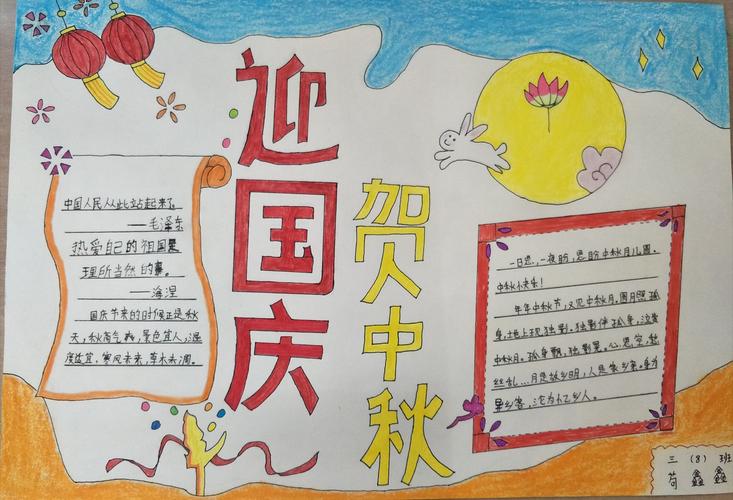 迎国庆
贺中秋
中国人民从此站起来了
——毛泽东
热爱自己的祖国是
理所当然的事。
——海涅
国庆节来的时候正是秋
天,秋高气爽,景色宜人,温
度适宜,寒风未来,草木未凋。
一日思,一夜盼,思盼中秋月儿圆。
中秋快乐!
年年中秋节,又见中秋月,圆月照孤
身,地上现独影。独影伴孤身,泣
中秋月。孤身飘,独影晃。心思定,愁
丝乱...月是故乡明,人是家乡亲。身为
异乡客,沱为忆乡人。
三(8)班
苟鑫鑫